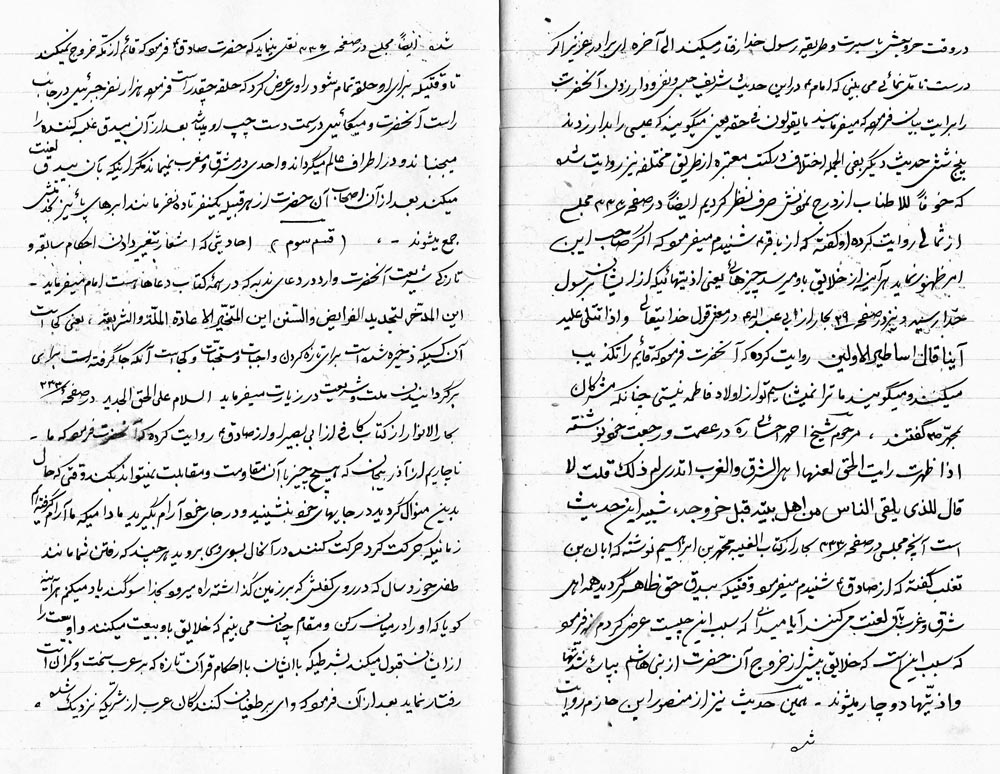 در وقت خروجش با سیرت و طریقه رسول خدا رفتار میکند الی آخره ای برادر عزیز اگر
درست تأمل نمائی می بینی که امام ۴ در این حدیث شریف جلی و نفرو دار زدن آنحضرت
را بدایت بیان فرموده که میفرماید یا یقولون فی حقه یعنی میگویند که عیسی را بدار زدند
پنج شش حدیث دیگر بفی الجمله اختلاف در کتب معتبره از طریق مختلفه نیز روایت شده
که خوفاً للاطناب از درج نمودنش صرف نظر کردیم ایضاً در صفحه ۳۳۶ مجلسی
از ثمالی روایت کرده او گفته که از باقر ۴ شنیدم میفرمود که اگر صاحب این
امر ظهور نماید هر آینه از خلایق باو میرسد چیزهائی یعنی اذیتهائیکه از ایشان برسول
خدا رسید و نیز در صفحه ۳۹ بحار از ابی عبدالله ۴ در معنی قول خدا یتعالی و اذا تتلی علیه
آیتنا قال اساطیر الاولین روایت کرده که آنحضرت فرموده که قائم را تکذیب
میکنند و میگویند ما ترا نمیشناسیم تو از اولاد فاطمه نیستی چنانکه مشرکان
بمحمد ص گفتند ، مرحوم شیخ احمد احسائی ره در عصمت و رجعت خود نوشته
اذا ظهرت رایت الحق لعنها اهل الشرق والغرب اتدری لم ذلک قلت لا
قال للذی یلقی الناس من اهل بیته قبل خروجه، شبیه این حدیث
است آنچه مجلسی در صفحه ۳۳۶ بحار از کتاب الغیبه محمد بن ابراهیم نوشته که ابان بن
تغلب گفته که از صادق ۴ شنیدم میفرمود وقتیکه بیدق حق ظاهر گردید همه اهل
شرق و غرب بآن لعنت می کنند آیا میدانی که سبب این چیست عرض کردم نه فرمود
که سبب این است که خلایق پیش از خروج آن حضرت از بنی هاشم
و اذیتها دوچار میشوند - همین حدیث نیز از منصور ابن حازم روایت
شده
شده ایضاً مجلسی در صفحه ۳۳۶ نقل مینماید که حضرت صادق ۴ فرموده که قائم از مکه خروج نمیکند
تا وقتیکه برای او حلقه تمام شود راوی عرض کرد که حلقه چقدر است فرمود هزار نفر جبرئیل در جانب
راست آنحضرت و میکائیل در سمت دست چپ او میباشد بعد از آن بیدق غلبه کننده را
میجنباند و در اطراف عالم میگرداند واحدی در مشرق و مغرب نمیماند مگر اینکه بآن بیدق لعنت
میکند بعد از آن اصحاب آن حضرت از هر قبیله یکنفر تا ده نفر مانند ابرهای پائیز نزدش
جمع میشوند - ، ( قسم سوم ) احادیثی که اشعار بتغییر دادن احکام سابقه و
تازگی شریعت آنحضرت وارد و در دعای ندبه که در همه کتاب دعاها هست امام میفرماید -
این المدخر لتجدید الفرایض والسنن این المتخیر الاعادة الملة والشریعة ، یعنی کجا است
آن کسیکه ذخیره شده است برای تازه کردن واجبات و سنتها و کجا است آنکه جا گرفته است برای
برگردانیدن ملت و شریعت در زیارت میفرماید السلام علی الحق الجدید در صفحه ۲۳۳
بحار الانوار از کتاب کافی از ابی بصیر او از صادق ۴ روایت کرده که آنحضرت فرموده که ما -
ناچاریم از آذربیجان که هیچ چیز بآن مقاومت و مقابلت نمیتواند بکند وقتی که حال
بدین منوال گردید در جایهای خود نشینید و در جای خود آرام بگیرید مادامیکه ما آرام گرفته ایم
زمانیکه حرکت کرد حرکت کننده در آنحال بسوی وی بروید هر چند که رفتن شما مانند
طفل خورد سال که در روی کفلش که بر زمین گذاشته راه میرود بخدا سوگند یاد میکنم هر آینه
گویا که او را در میان رکن و مقام چنان می بینم که خلایق باو بیعت میکنند و او بیعت را
از ایشان قبول میکند بشرطیکه با ایشان با احکام قرآن تازه که بر عرب سخت و گران است
رفتار نماید بعد از آن فرموده که وای بر طغیان کنندگان عرب از شریکه نزدیک شده .